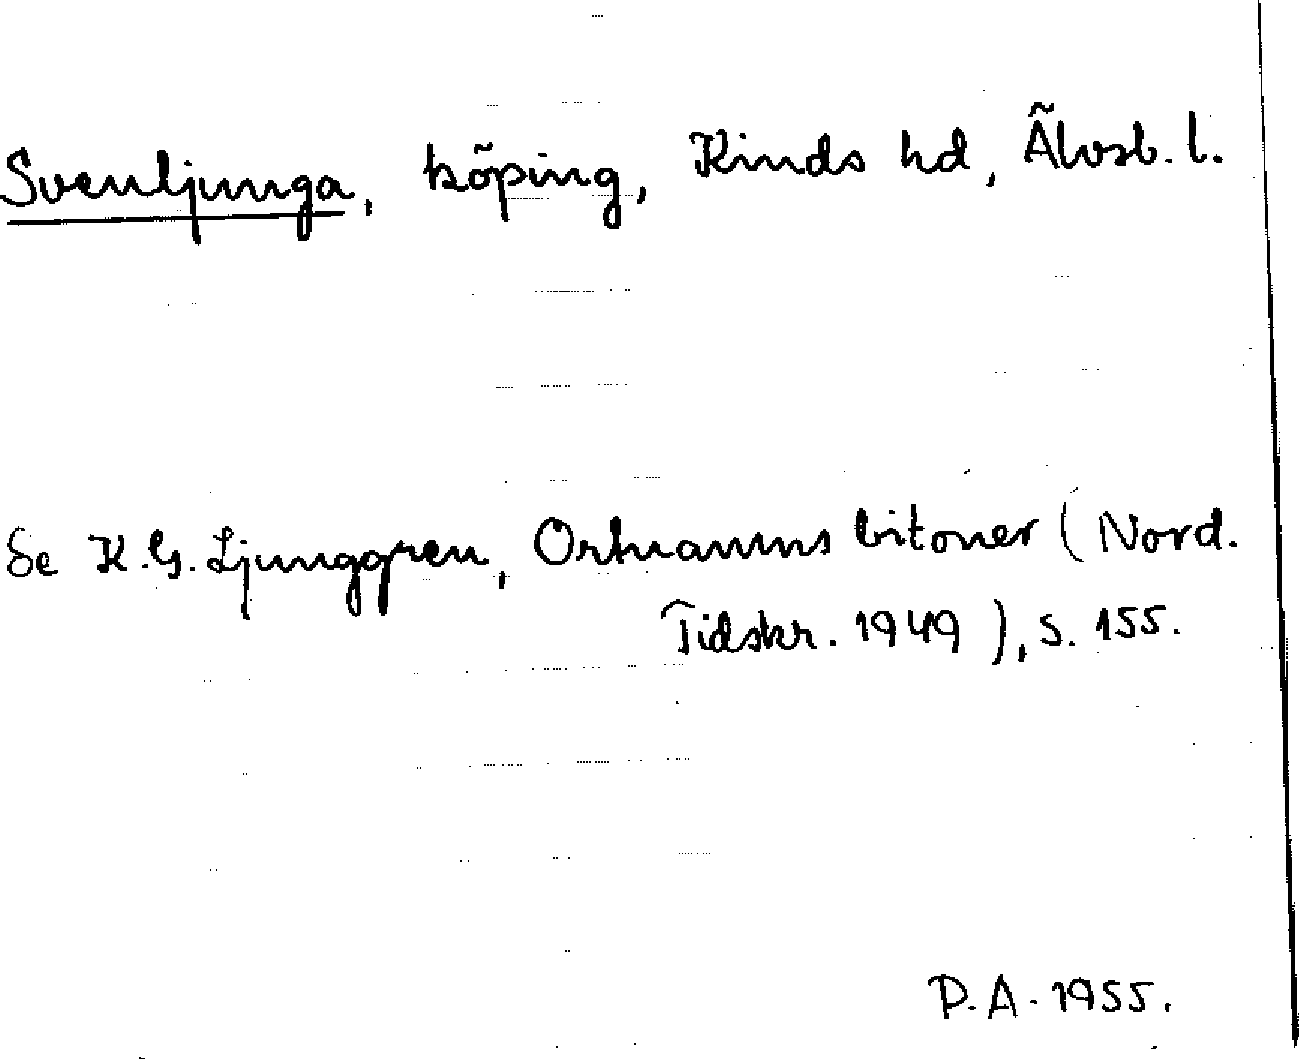 Svenljunga, köping, Kinds hd, Älvsb. l.
Se K.G. Ljunggren, Ortnamns bitoner (Nord.
Tidskr. 1949), s. 155.
P.A. 1955.